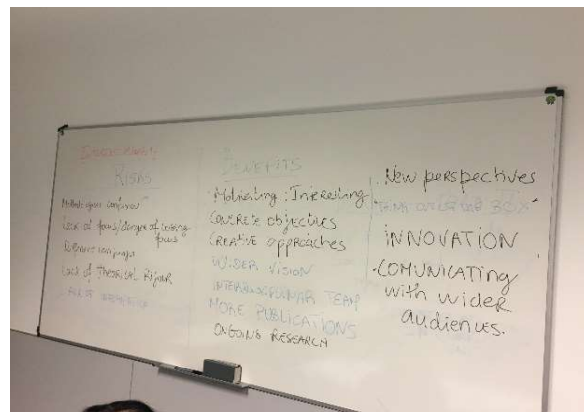 RISKS
Lack of focus/danger of losing
focus
Lack of theoretical Rigour
BENEFITS
Motivating: Interesting
CONCRETE objectives
CREATIVE approaches
WIDER VISION
INTERDISCIPLINAR TEAM
MORE PUBLICATIONS
ONGOING RESEARCH
New perspectives
INNOVATION
COMUNICATING
with wider
audiences.